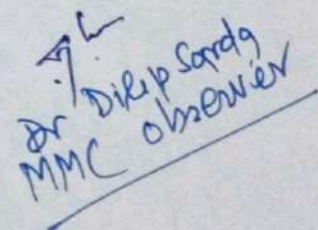 Dr Dilip Sarda
MMC observer